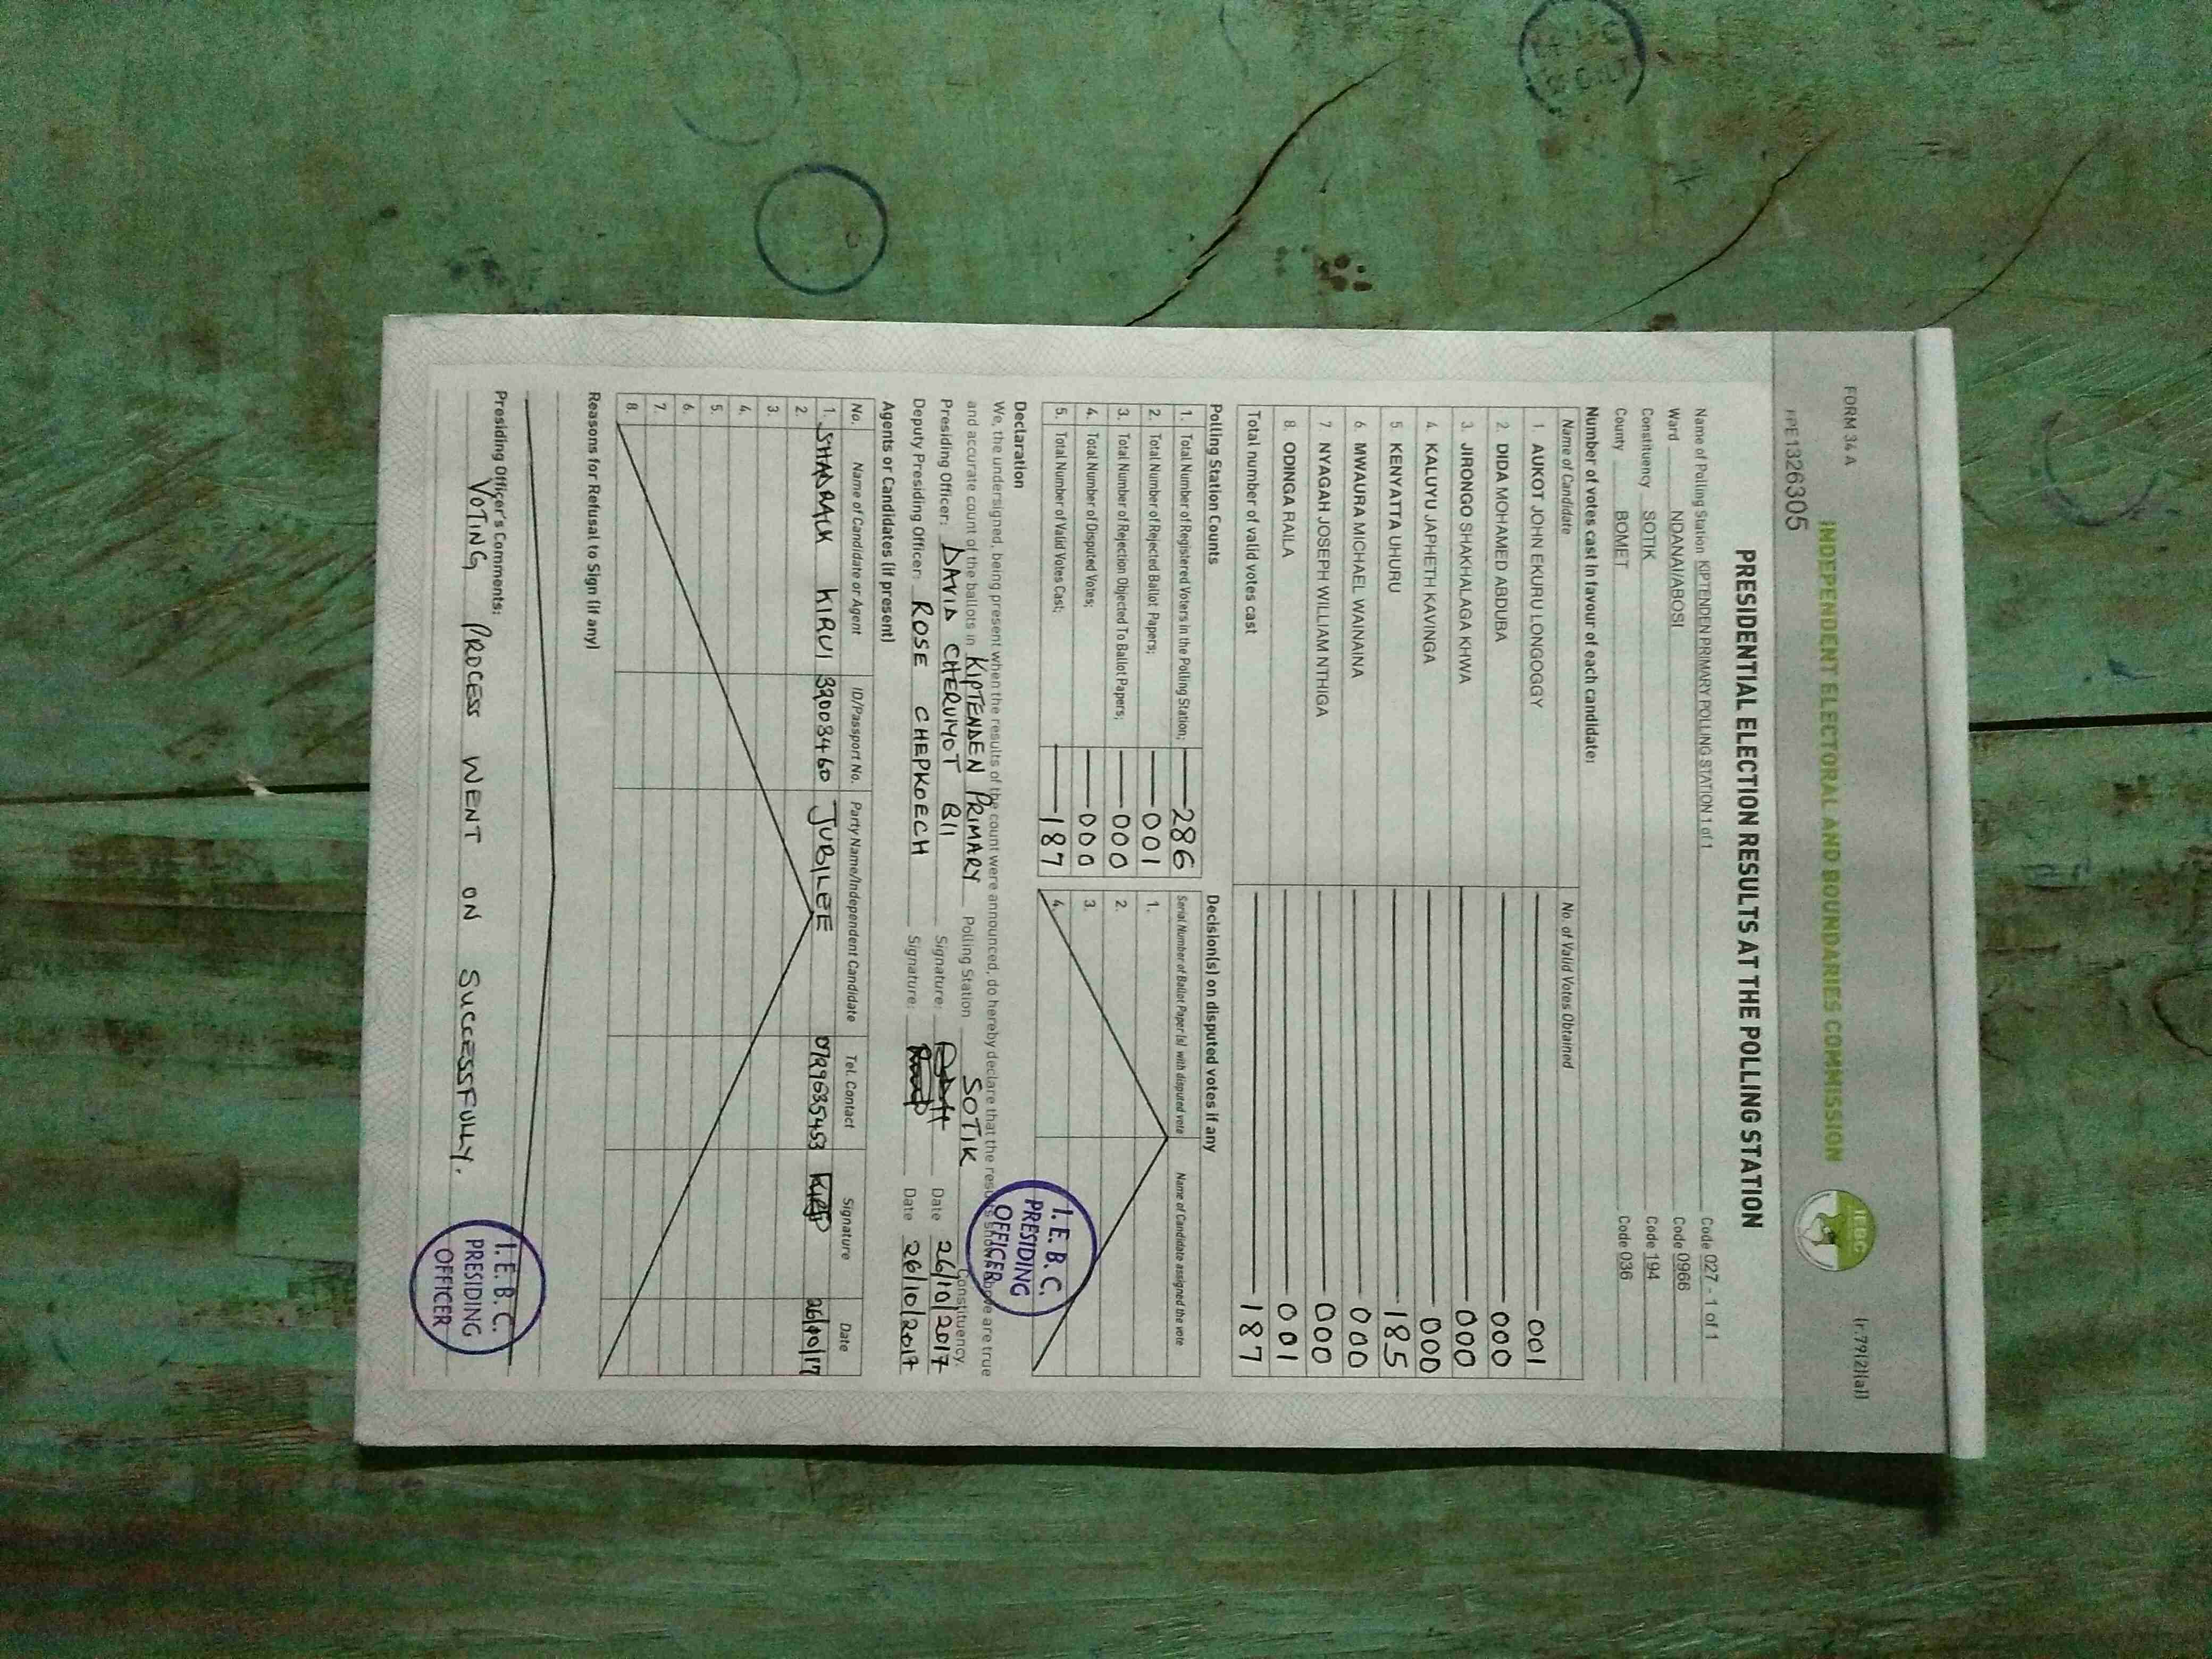 FORM 34 A
(r.79(2)(a))
INDEPENDENT ELECTORAL AND BOUNDARIES COMMISSION
IEBC
FPE1326305
PRESIDENTIAL ELECTION RESULTS AT THE POLLING STATION
Name of Polling Station KIPTENDEN PRIMARY POLLING STATION 1 of 1 Code 027 - 1 of 1
Ward NDANAI/ABOSI Code 0966
Constituency SOTIK Code 194
County BOMET Code 036
Number of votes cast in favour of each candidate:
Name of Candidate No. of Valid Votes Obtained
1. AUKOT JOHN EKURU LONGOGGY 001
2. DIDA MOHAMED ABDUBA 000
3. JIRONGO SHAKHALAGA KHWA 000
4. KALUYU JAPHETH KAVINGA 000
5. KENYATTA UHURU 185
6. MWAURA MICHAEL WAINAINA 000
7. NYAGAH JOSEPH WILLIAM NTHIGA 000
8. ODINGA RAILA 001
Total number of valid votes cast 187
Polling Station Counts Decision(s) on disputed votes if any
1. Total Number of Registered Voters in the Polling Station; 286 Serial Number of Ballot Paper(s) with disputed vote Name of Candidate assigned the vote
2. Total Number of Rejected Ballot Papers; 001 1.
3. Total Number of Rejection Objected To Ballot Papers; 000 2.
4. Total Number of Disputed Votes; 000 3.
5. Total Number of Valid Votes Cast; 187 4.
I. E. B. C.
PRESIDING
OFFICER
Declaration
We, the undersigned, being present when the results of the count were announced, do hereby declare that the results shown above are true
and accurate count of the ballots in KIPTENDEN PRIMARY Polling Station SOTIK Constituency.
Presiding Officer: DAVID CHERUIYOT BII Signature: Date 26/10/2017
Deputy Presiding Officer: ROSE CHEPKOECH Signature: Date 26/10/2017
Agents or Candidates (if present)
No. Name of Candidate or Agent ID/Passport No. Party Name/Independent Candidate Tel. Contact Signature Date
1. SHADRACK KIRUI 32008460 JUBILEE 0729635453 26/10/17
2.
3.
4.
5.
6.
7.
8.
Reasons for Refusal to Sign (if any)
Presiding Officer's Comments:
VOTING PROCESS WENT ON SUCCESSFULLY.
I. E. B. C.
PRESIDING
OFFICER